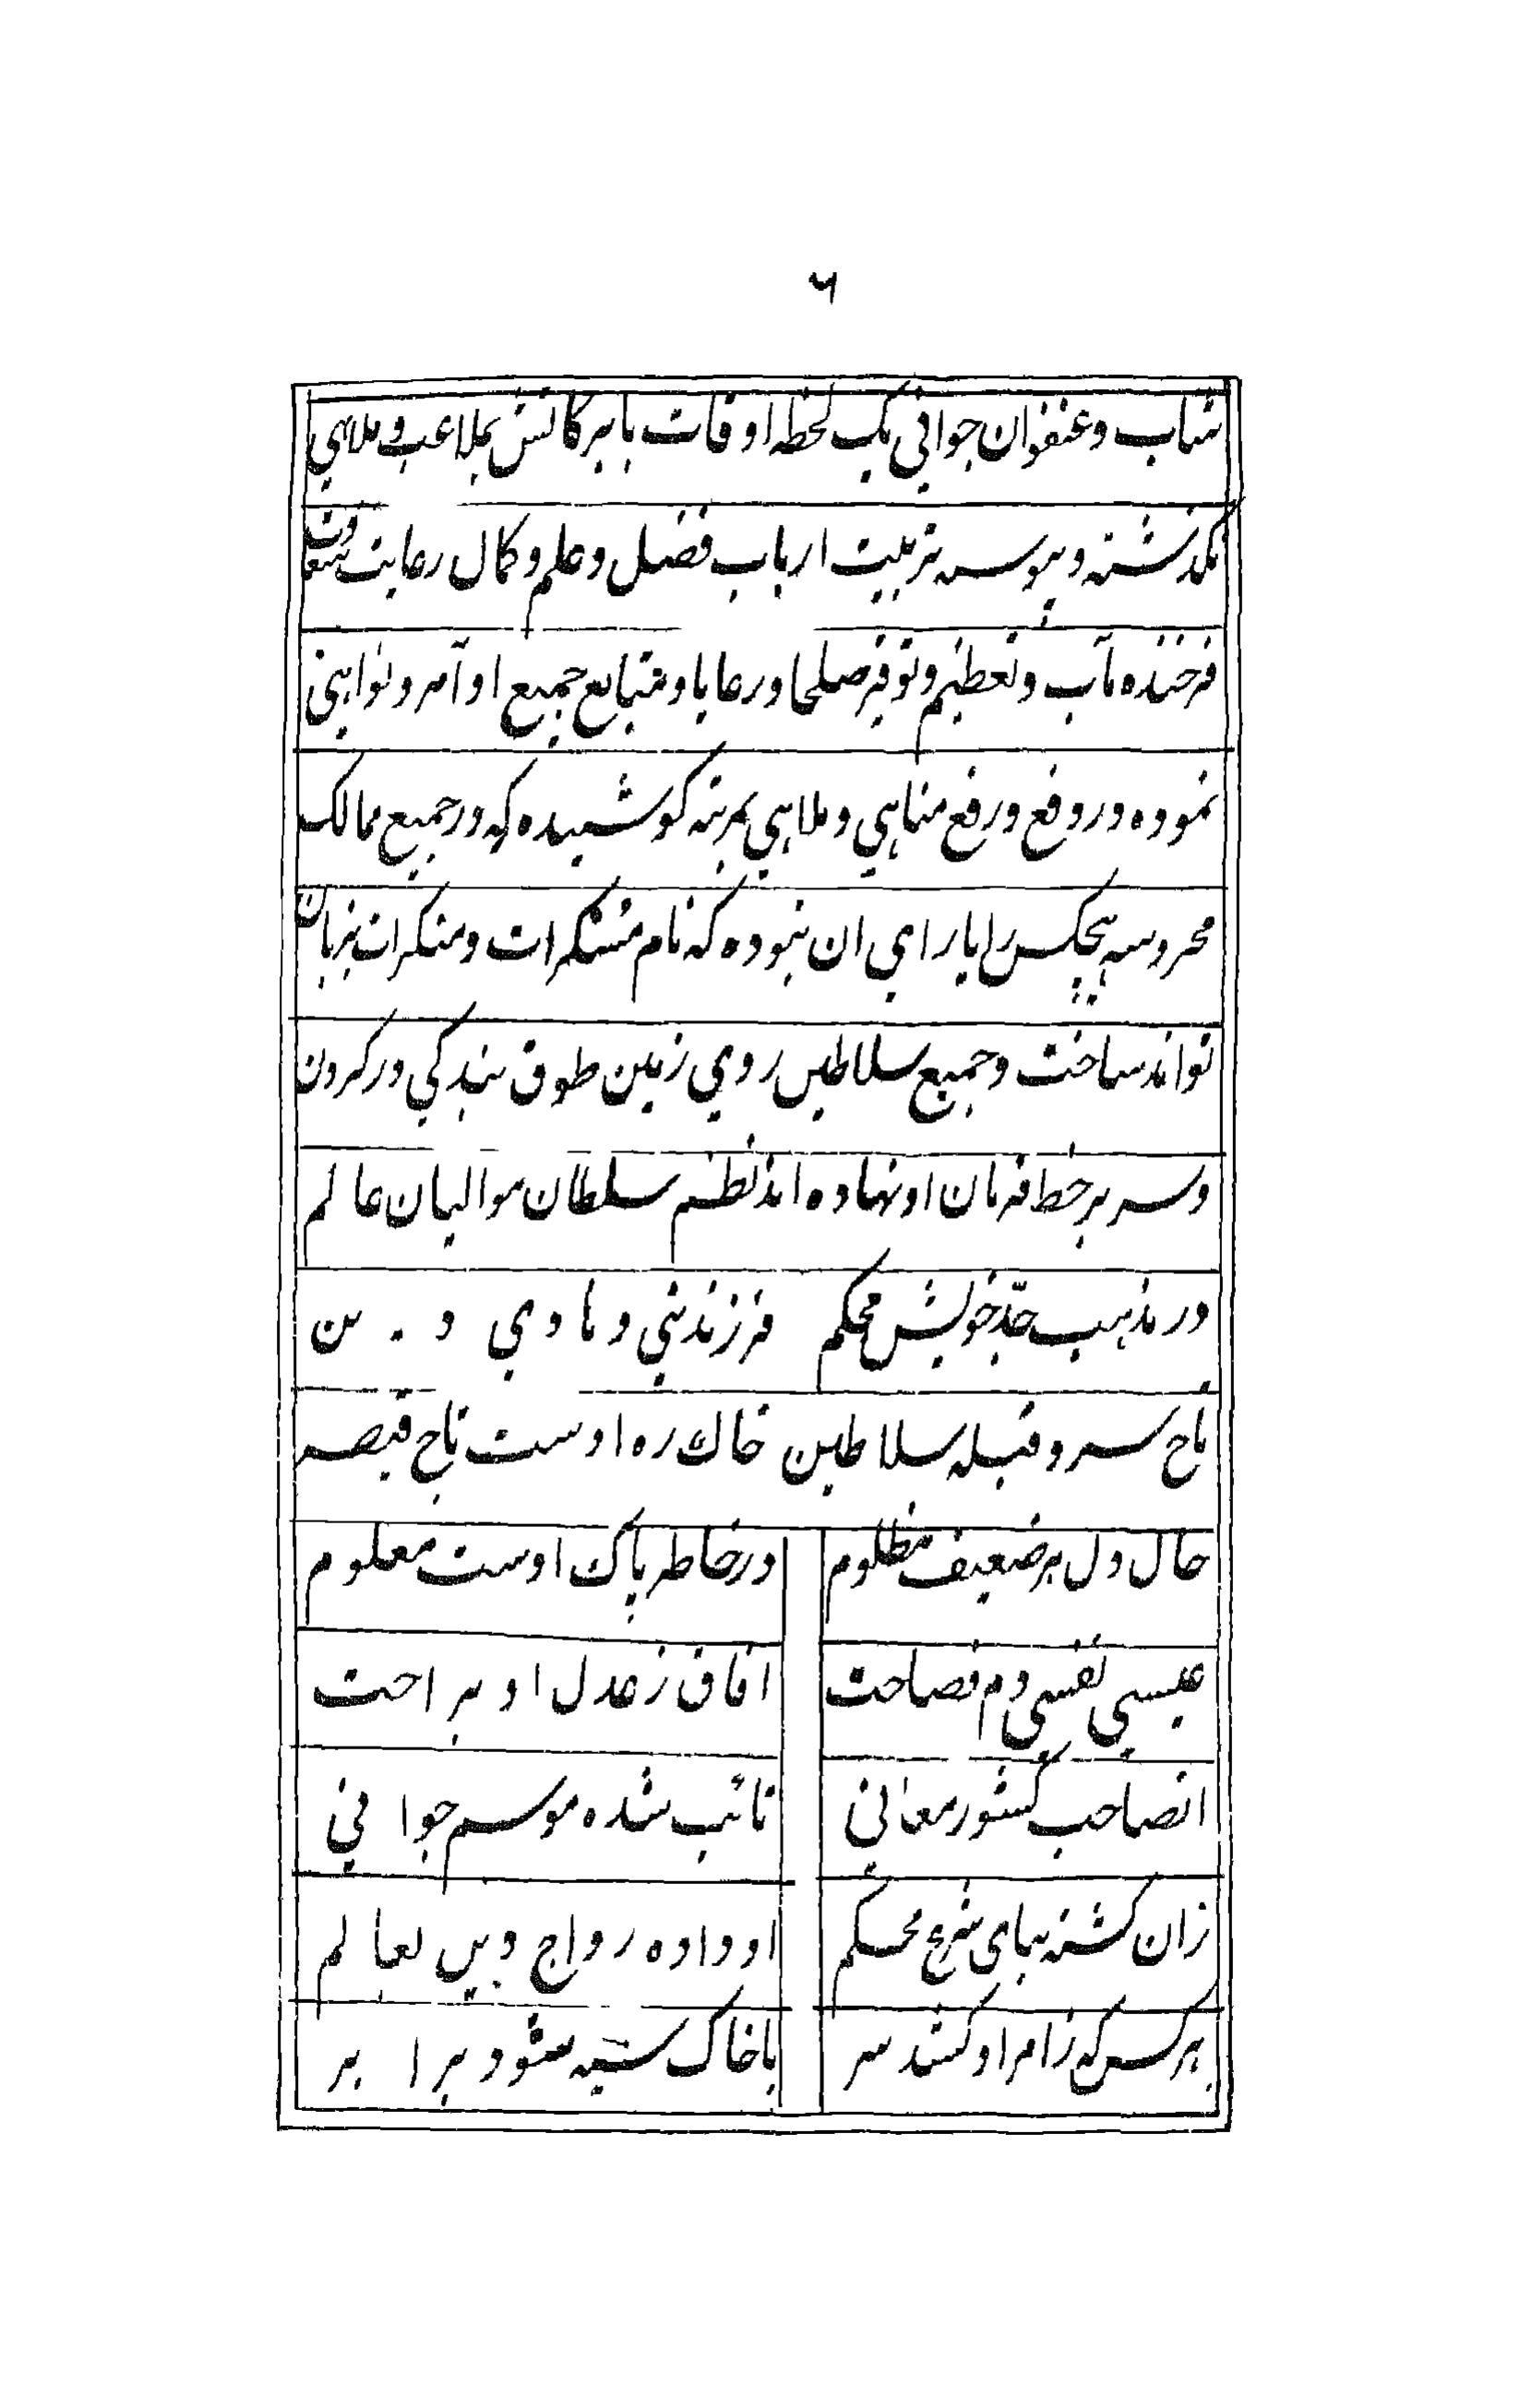 ٦
شباب و عنفوان جوانی یک لحظه اوقات بابرکاتش بملاعب و ملاهی
نگذشته و پیوسته بتربیت ارباب فضل و علم و کمال رعایت
فرخنده مآب و تعظیم و توقیر صلحا و رعایا و متابع جمیع اوامر و نواهی
نموده و در دفع و رفع مناهی و ملاهی بمرتبه کوشیده که در جمیع ممالک
محروسه هیچکس را یارای ان نبوده که نام مسکرات و منکرات بزبان
تواند ساخت و جمیع سلاطین روی زمین طوق بندگی در گردن
و سر بر خط فرمان او نهاده اند نظم سلطان موالیان عالم
در مذهب جدّ خویش محکم فرزند نبی و هادی دین
تاج سر و قبله سلاطین خاک ره اوست تاج قیصر
حال دل هر ضعیف مظلوم در خاطر پاک اوست معلوم
عیسی نفسی دم فصاحت افاق ز عدل او براحت
انصاحب کشور معانی تائب شده موسم جوانی
زان گشته بنای شرع محکم او داده رواج دین بعالم
هر کس که ز امر او کشد سر با خاک سیه شود برابر